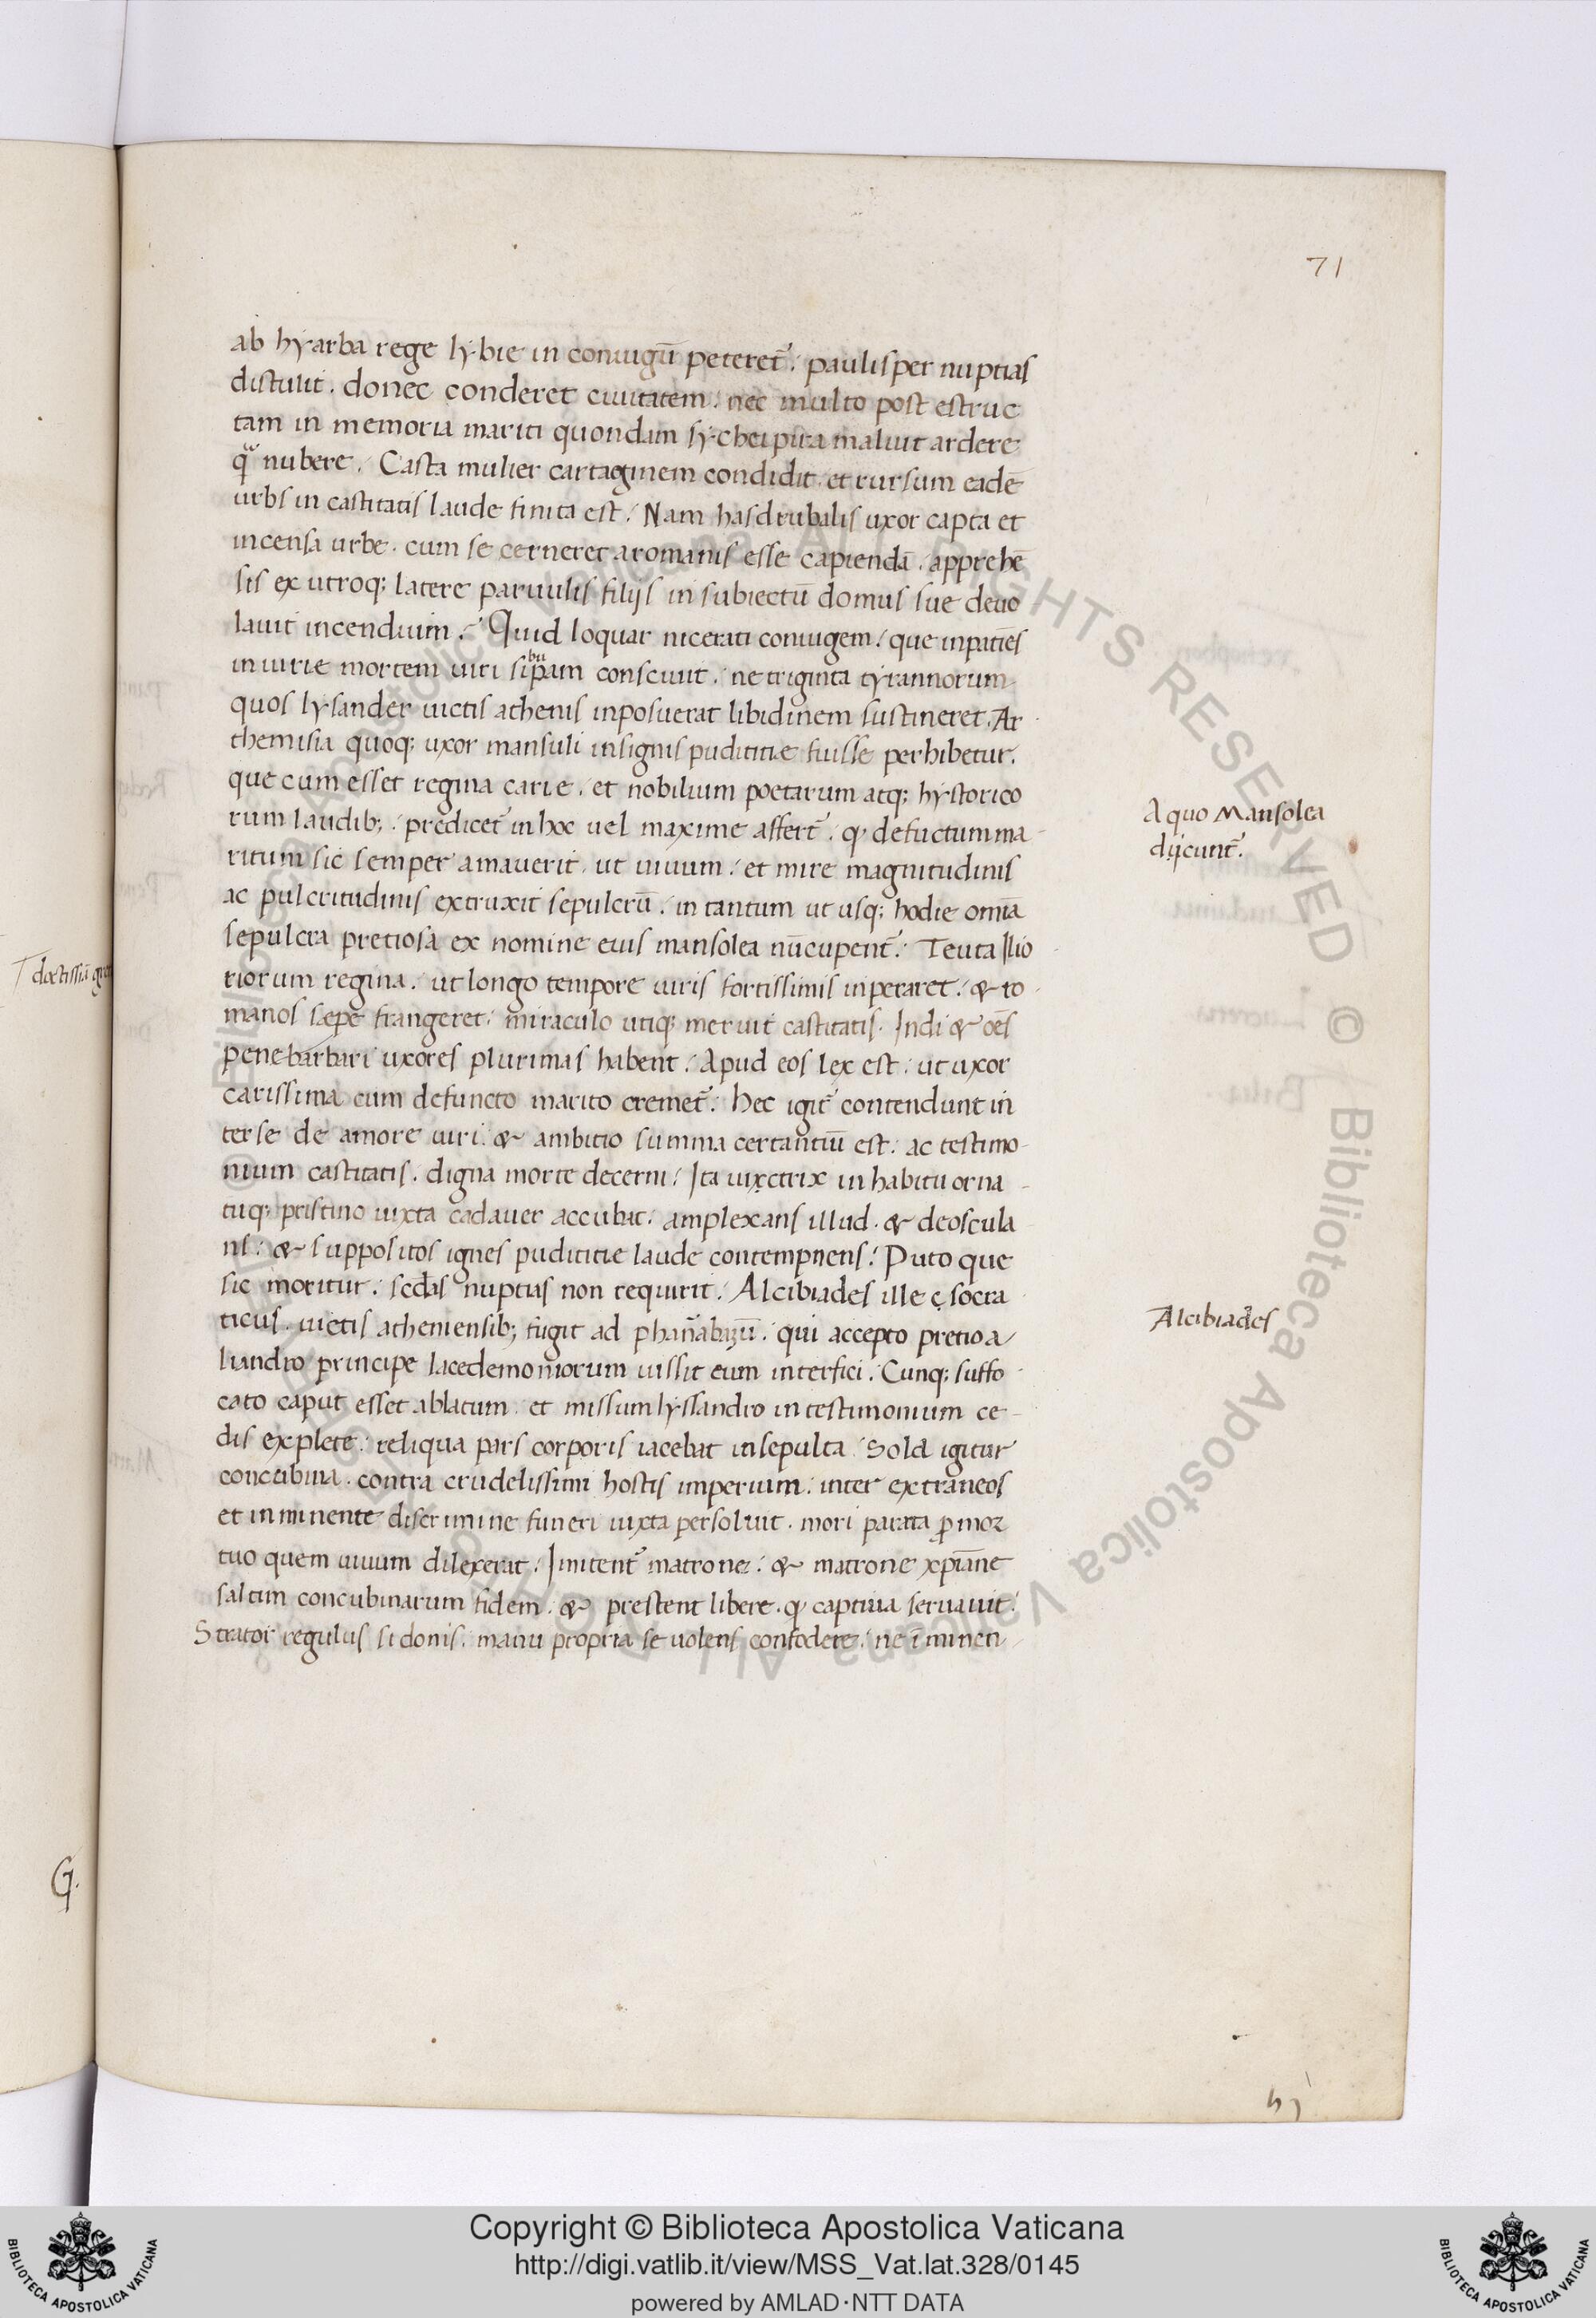 71
ab hyarba rege lybie in coniugiũ peteret᷑. paulisper nuptias
distulit. donec conderet ciuitatem. nec multo post estruc
tam in memoria mariti quondam sychei pira maluit ardere
qͣ nubere. Casta mulier cartaginem condidit. et rursum eadẽ
urbs in castitatis laude finita est. Nam hasdrubalis uxor capta et
incensa urbe. cum se cerneret a romanis esse capiendã. apprehẽ
sis ex utroq; latere paruulis filijs in subiectũ domus sue deuo
lauit incendium. Quid loquar nicerati coniugem. que inpatiẽs
iniurie mortem uiri sibi ipsam consciuit. ne triginta tyrannorum
quos lysander uictis athenis inposuerat libidinem sustineret. Ar
themisia quoq; uxor mansuli insignis pudititie fuisse perhibetur.
que cum esset regina carie. et nobilium poetarum atq; hystorico
rum laudib;. predicet᷑ in hoc uel maxime affert᷑. ꝙ defuctum ma
ritum sic semper amauerit. ut uiuum. et mire magnitudinis
ac pulcritudinis extruxit sepulcrũ. in tantum ut usq; hodie omĩa
sepulcra pretiosa ex nomine eius mansolea nũcupent᷑. Teuta Ilio
riorum regina. ut longo tempore uiris fortissimis inperaret. & ro
manos sæpe frangeret. miraculo utiq; meruit castitatis. Indi & oẽs
pene barbari uxores plurimas habent. Apud eos lex est. ut uxor
carissima cum defuncto marito cremet᷑. Hec igit᷑ contendunt in
ter se de amore uiri. & ambitio summa certantiũ est. ac testimo
nium castitatis. digna morte decerni. Ita uixctrix in habitu orna
tuq; pristino iuxta cadauer accubat. amplexans illud. & deoscula
ns. & suppositos ignes pudititie laude contempnens. Puto que
sic moritur. scd̃as nuptias non requirit. Alcibiades ille ç socra
ticus. uictis atheniensib; fugit ad phañabazũ. qui accepto pretio a
liandro principe lacedemoniorum iussit eum interfici. Cunq; suffo
cato caput esset ablatum. et missum lyssandro in testimonium ce
dis explete. reliqua pars corporis iacebat insepulta. Sola igitur
concubina. contra crudelissimi hostis imperium. inter extraneos
et inminente discrimine funeri iuxta persoluit. mori parata ꝓ mor
tuo quem uiuum dilexerat. Imitent᷑ matrone. & matrone xp̃iane
saltim concubinarum fidem. & prestent libere. ꝙ captiua seruauit.
Strator regulus sidonis. manu propria se uolens confodere. ne ĩminen
A quo Mansolea
dijcunt᷑.
Alcibiades
G.
Copyright © Biblioteca Apostolica Vaticana
http://digi.vatlib.it/view/MSS_Vat.lat.328/0145
powered by AMLAD·NTT DATA
BIBLIOTECA APOSTOLICA VATICANA
BIBLIOTECA APOSTOLICA VATICANA